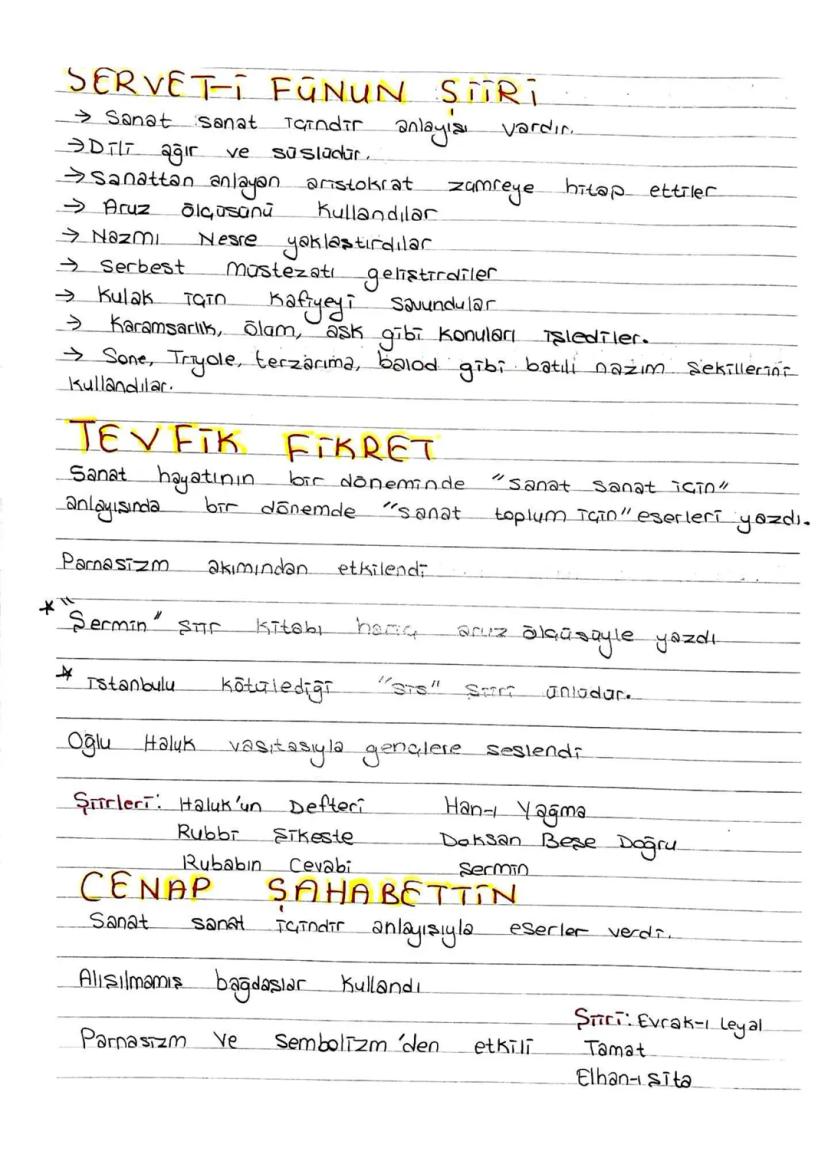 SERVET-İ FÜNUN ŞİİRİ
→ Sanat sanat içindir anlayışı vardır.
→ Dili ağır ve süslüdür.
→ Sanattan anlayan aristokrat zümreye hitap ettiler
→ Aruz ölçüsünü kullandılar
→ Nazmı Nesre yaklaştırdılar
→ Serbest müstezatı geliştirdiler
→ Kulak için kafiyeyi savundular
→ Karamsarlık, ölüm, aşk gibi konuları işlediler.
→ Sone, Triyole, terzarima, balod gibi batılı nazım şekillerini
kullandılar.
TEVFİK FİKRET
Sanat hayatının bir döneminde "sanat sanat için"
anlayışında bir dönemde "sanat toplum için" eserleri yazdı.
Parnasizm akımından etkilendi
* "Şermin" şiir kitabı hariç aruz ölçüsüyle yazdı
* İstanbulu kötülediği "sis" şiiri ünlüdür.
Oğlu Haluk vasıtasıyla gençlere seslendi
Şiirleri: Haluk'un Defteri Han-ı Yağma
Rubbi Şikeste Doksan Beşe Doğru
Rubabın Cevabi Şermin
CENAP ŞAHABETTİN
Sanat sanat içindir anlayışıyla eserler verdi.
Alışılmamış bağdaşlar kullandı
Şiiri: Evrak-ı leyal
Parnasizm ve Sembolizm'den etkili Tamat
Elhan-ı şita